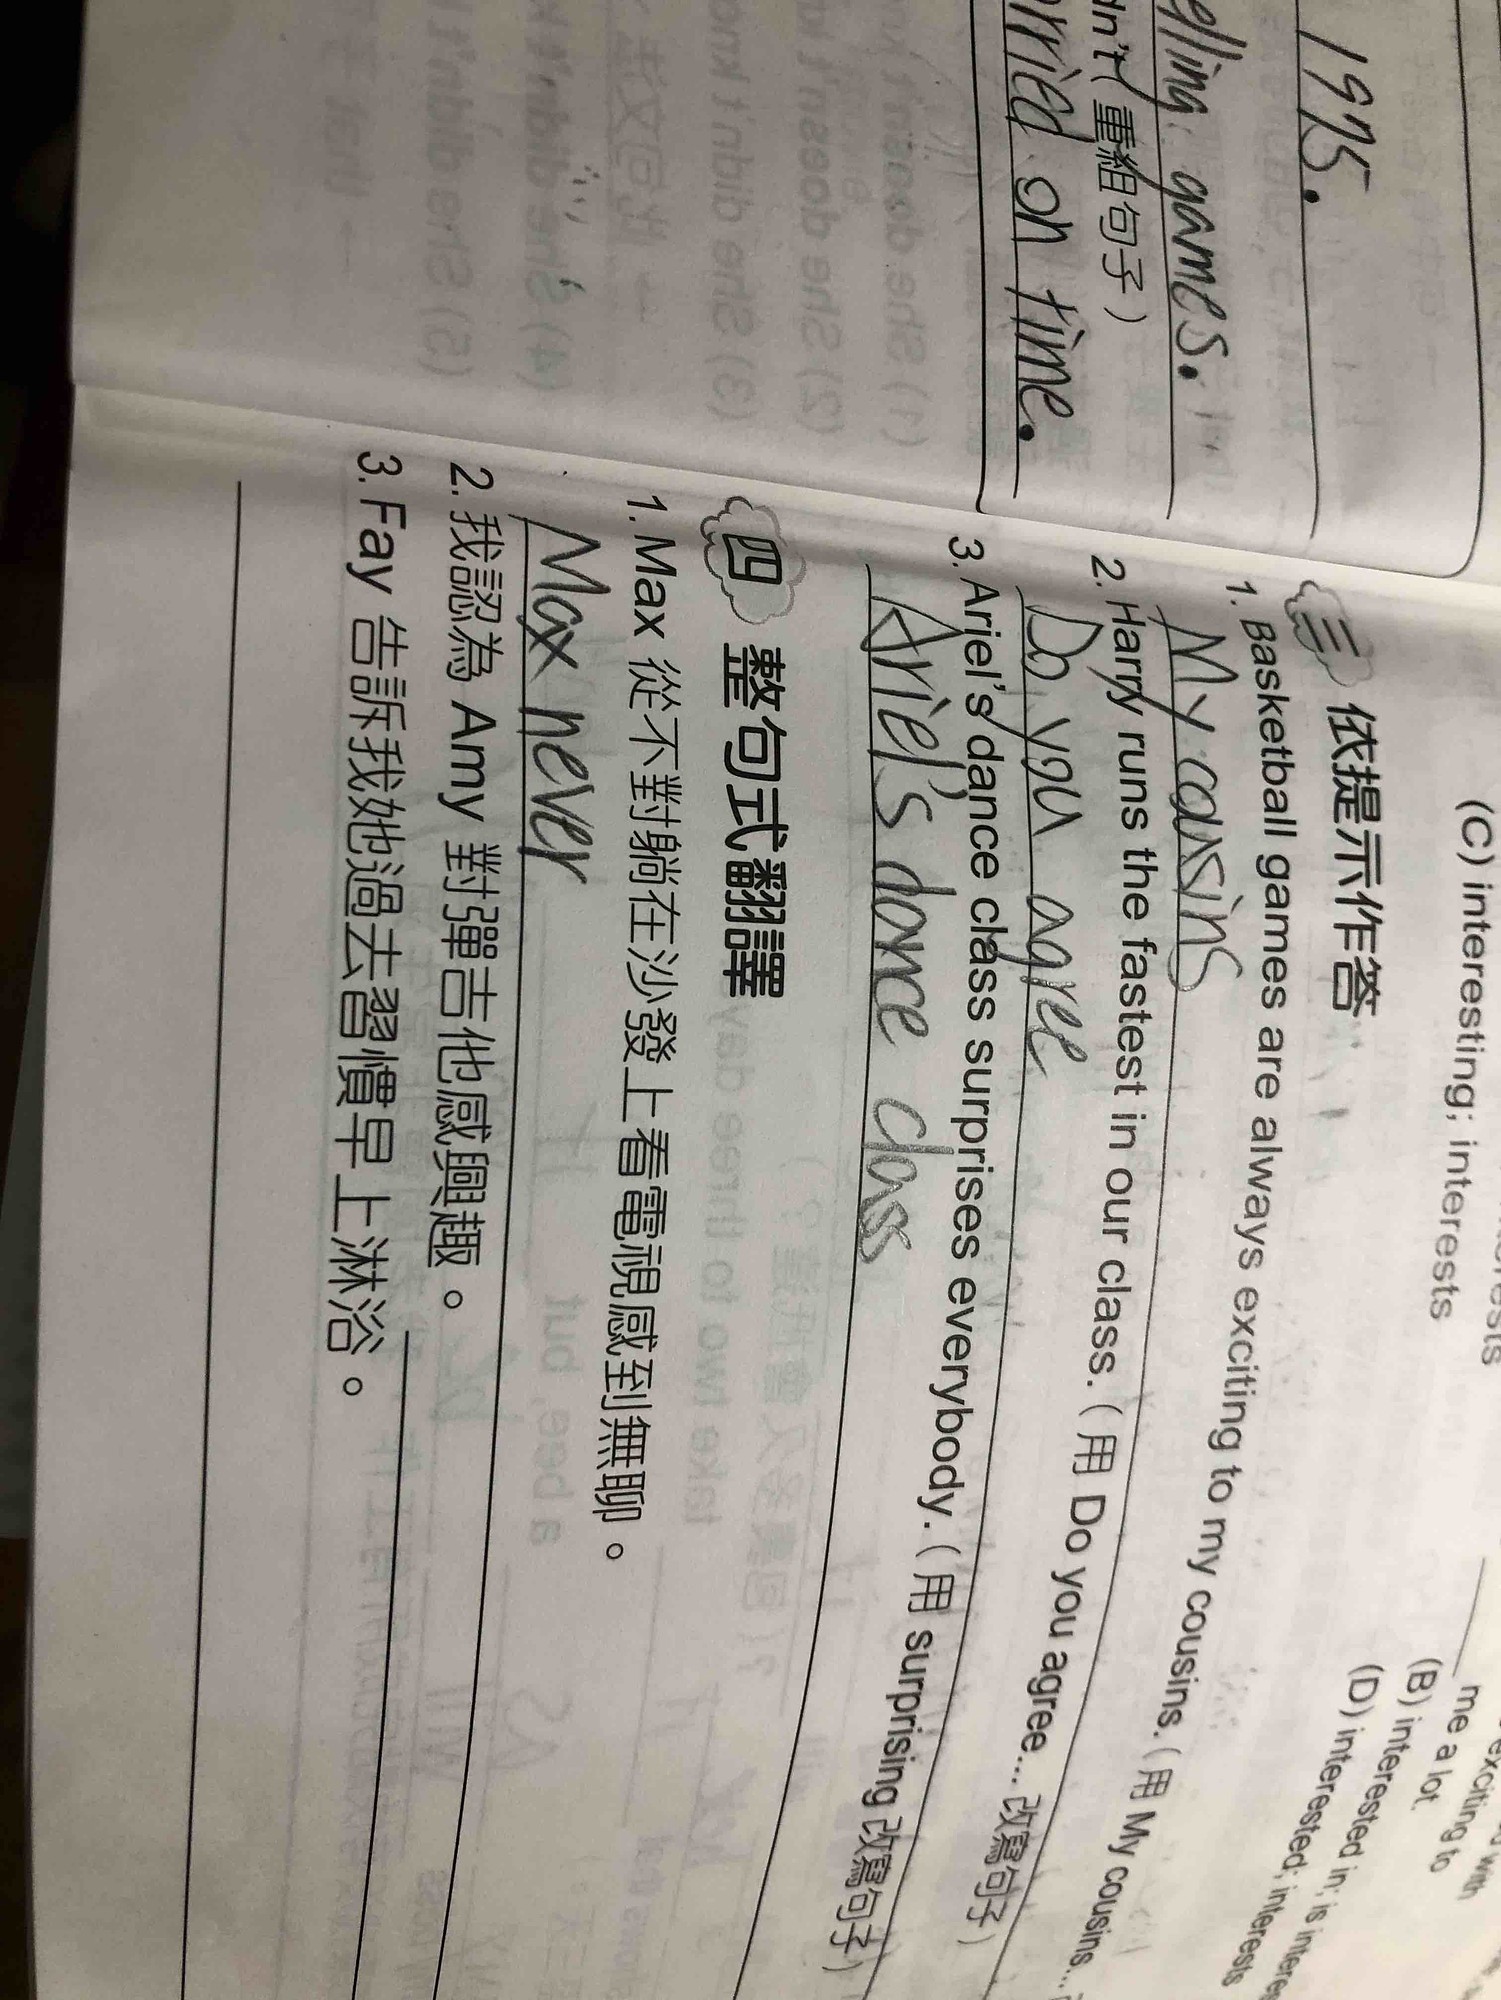 1975.
elling games.
dn't (重組句子)
rried on time.
(C) interesting; interests
me a lot.
(B) interested in; is
(D) interested; interests
exciting to
with
三 依提示作答
1. Basketball games are always exciting to my cousins. (用 My cousins...
My cousins
2. Harry runs the fastest in our class. (用 Do you agree.... 改寫句子)
Do you agree
3. Ariel's dance class surprises everybody. (用 surprising 改寫句子)
Ariel's dance class
四 整句式翻譯
1. Max 從不對躺在沙發上看電視感到無聊。
Max never
2. 我認為 Amy 對彈吉他感興趣。
3. Fay 告訴我她過去習慣早上淋浴。